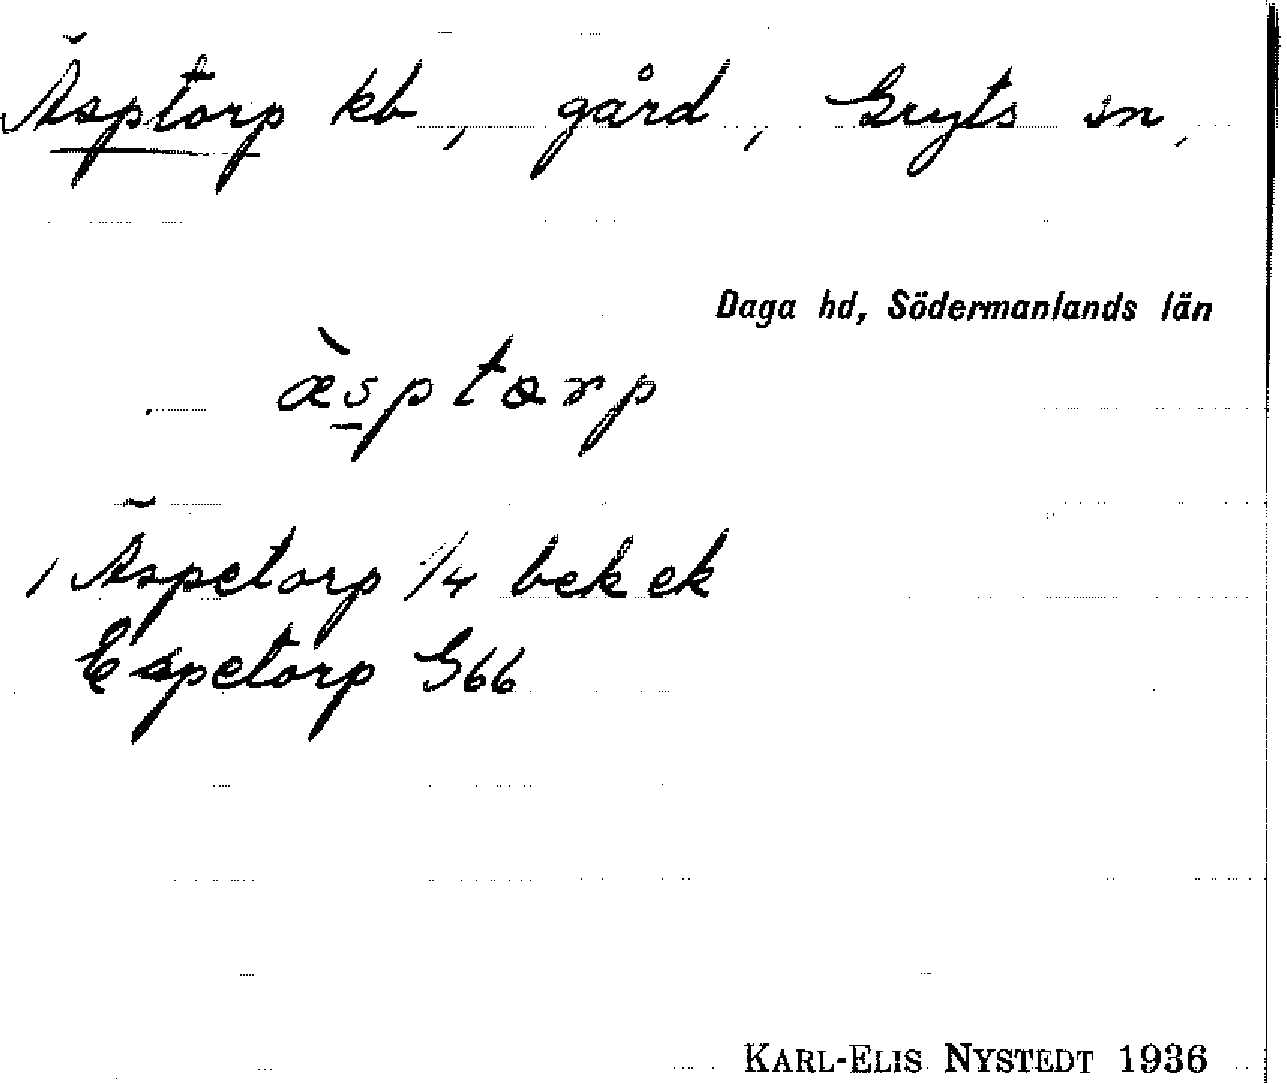 Äsptorp kb, gård, Gryts sn,
Daga hd, Södermanlands län
æ̀sptorp
1 Äspetorp 1/4 bek ek
Espetorp G66
KARL-ELIS NYSTEDT 1936